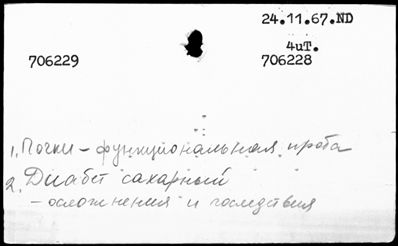 24.11.67.ND
4иТ.
706229 706228
1. Почки – функциональная проба
2. Диабет сахарный
– осложнения и последствия